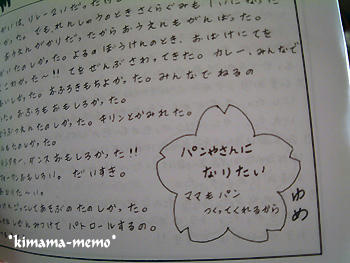 かいは、リレー2いだったけど
かった。でも、れんしゅうのとき さくらぐみも 1いになった
おうえんがかりだったからおうえんもがんばった。
かいたのしかった。よるのぼうけんのとき、おばけにてを
こわかった〜!! てをぜんぶさわってきた。カレー、みんなで
しかった。おふろきもちよかった。みんなでねるの
かった。おふろもおもしろかった。
どうぶつえんたのしかった。キリンとかみれた。
しかった。
ダンスおもしろかった!!
おもしろい。だいすき。
〜い。
ごっこしてあそぶのたのしかった。
みつけて パトロールするの。
パンやさんに
なりたい
ママもパン
つくってくれるから
ゆめ
*kimama-memo*